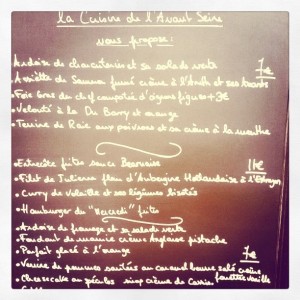 La Cuisine de l'Avant Seine
vous propose :
Ardoise de charcuteries et sa salade verte 7€
Assiette de Saumon fumé crème à l'Aneth et ses toasts
Foie Gras du chef compotée d'oignons figues +3€
Velouté à la Du Barry et orange
Terrine de Raie aux poivrons et sa crème à la menthe
Entrecôte frites sauce Bearnaise 11€
Filet de Julienne flan d'Aubergine Hollandaise à l'Estragon
Curry de Volaille et ses légumes
Hamburger du "Mercredi" frites
Ardoise de fromage et sa salade verte
Fondant de mamie crème Anglaise pistache
Parfait glacé à l'orange 7€
Verrine de pommes sautées au caramel beurre salé crème fouettée vanille
Cheesecake au spéculos sirop crème de Cassis